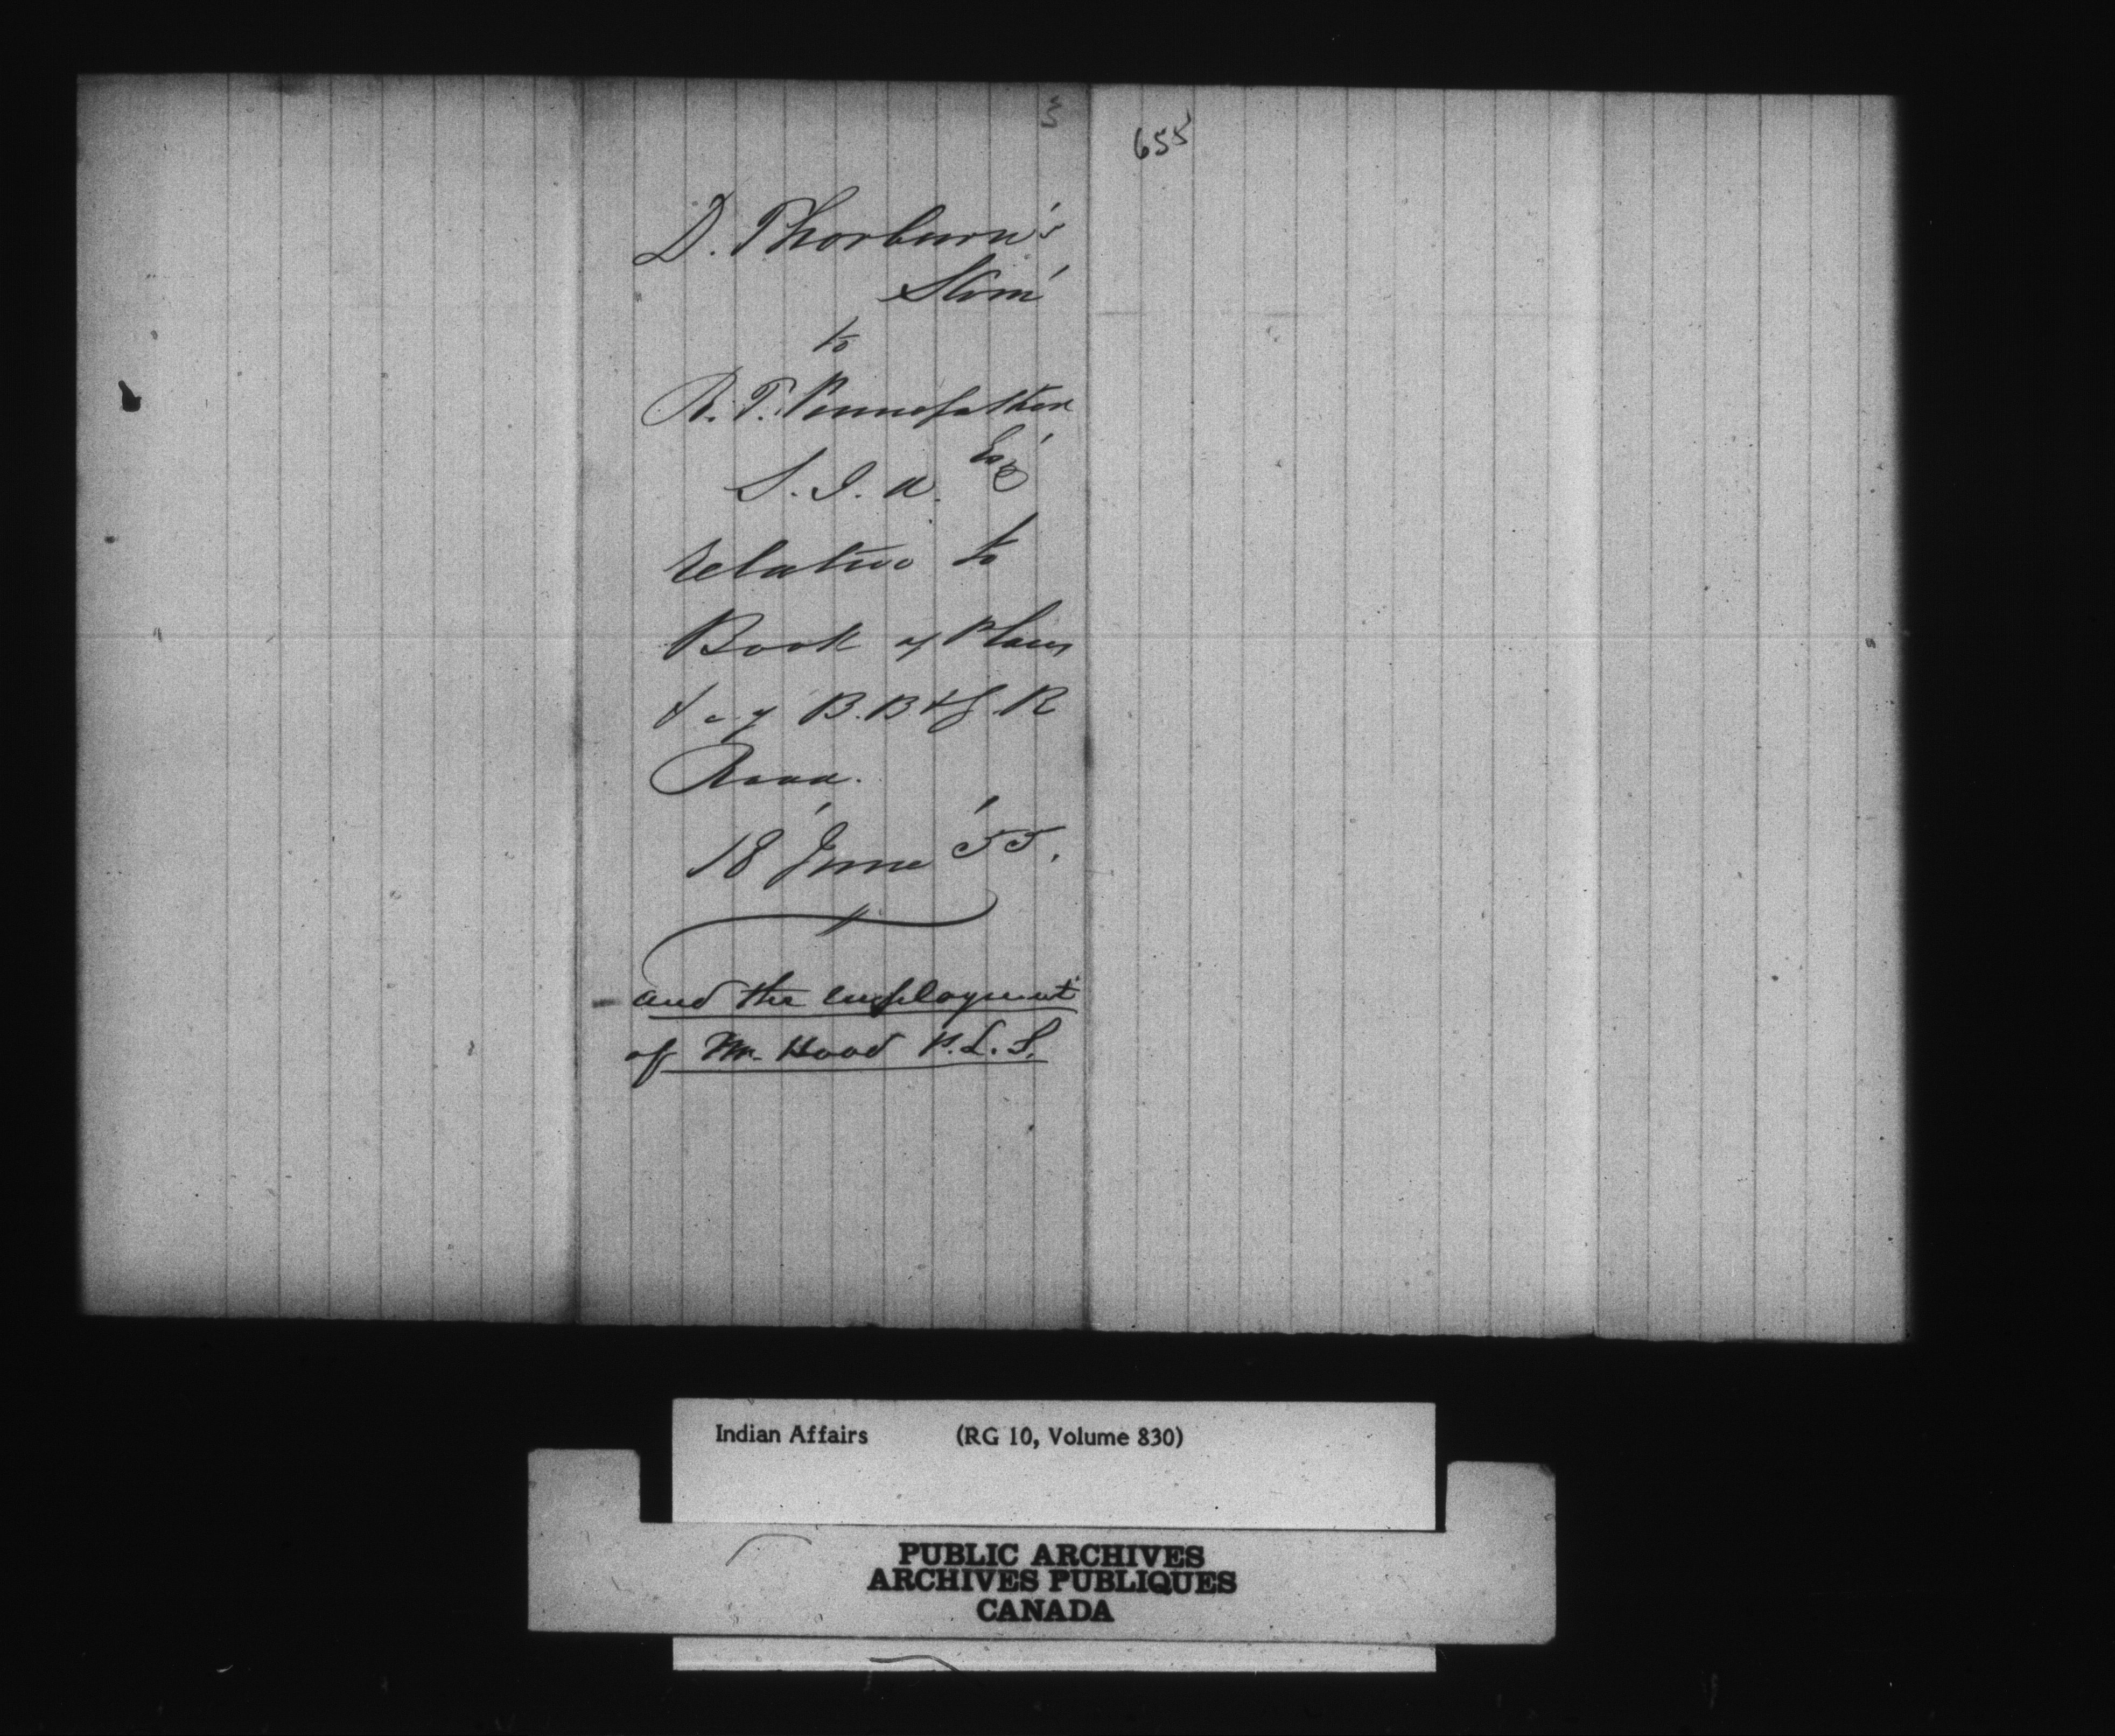 3
655
D. Thorburn's
to
R. T. Pennefather
Esq
S. I. A.
relative to
Book of Plans
&c of B. B & G. R
Road.
18 June '55.
and the employment
of Mr. Hood P. L. S.
Indian Affairs (RG 10, Volume 830)
PUBLIC ARCHIVES
ARCHIVES PUBLIQUES
CANADA